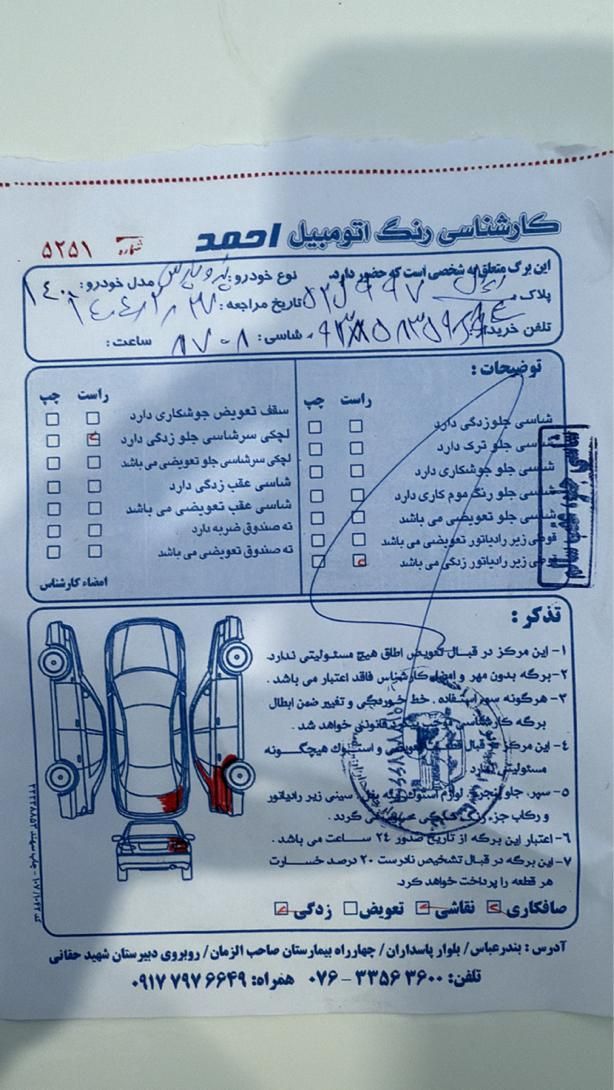 کارشناسی رنگ اتومبیل احمد
شماره ۵۲۵۱
این برگ متعلق به شخصی است که حضور دارد.
نوع خودرو: پژو پارس مدل خودرو: ۱۴۰۰
پلاک
تاریخ مراجعه:
تلفن خریدار:
شاسی: ۸۷۰۸ ساعت:
توضیحات:
راست چپ
شاسی جلو زدگی دارد
شاسی جلو ترک دارد
شاسی جلو جوشکاری دارد
شاسی جلو رنگ موم کاری دارد
شاسی جلو تعویضی می باشد
قوطی زیر رادیاتور تعویضی می باشد
قوطی زیر رادیاتور زدگی می باشد
راست چپ
سقف تعویض جوشکاری دارد
لچکی سرشاسی جلو زدگی دارد
لچکی سرشاسی جلو تعویضی می باشد
شاسی عقب زدگی دارد
شاسی عقب تعویضی می باشد
ته صندوق ضربه دارد
ته صندوق تعویضی می باشد
امضاء کارشناس
تذکر:
۱- این مرکز در قبال تعویض اطاق هیچ مسئولیتی ندارد.
۲- برگه بدون مهر و امضاء کارشناس فاقد اعتبار می باشد.
۳- هرگونه سوء استفاده، خط خوردگی و تغییر ضمن ابطال
برگه کارشناسی موجب پیگرد قانونی خواهد شد.
۴- این مرکز در قبال قطعات تعویضی و استوک هیچگونه
مسئولیتی ندارد
۵- سپر، جلو پنجره، لوازم استوک، سینی زیر رادیاتور
و رکاب جزء
۶- اعتبار این برگه از تاریخ صدور ۲۴ ساعت می باشد.
۷- این برگه در قبال تشخیص نادرست ۲۰ درصد خسارت
هر قطعه را پرداخت خواهد کرد.
صافکاری نقاشی تعویض زدگی
آدرس: بندرعباس/ بلوار پاسداران/ چهارراه بیمارستان صاحب الزمان/ روبروی دبیرستان شهید حقانی
تلفن: ۳۶۰۰ ۳۳۵۶ - ۰۷۶ همراه: ۶۶۴۹ ۷۹۷ ۰۹۱۷